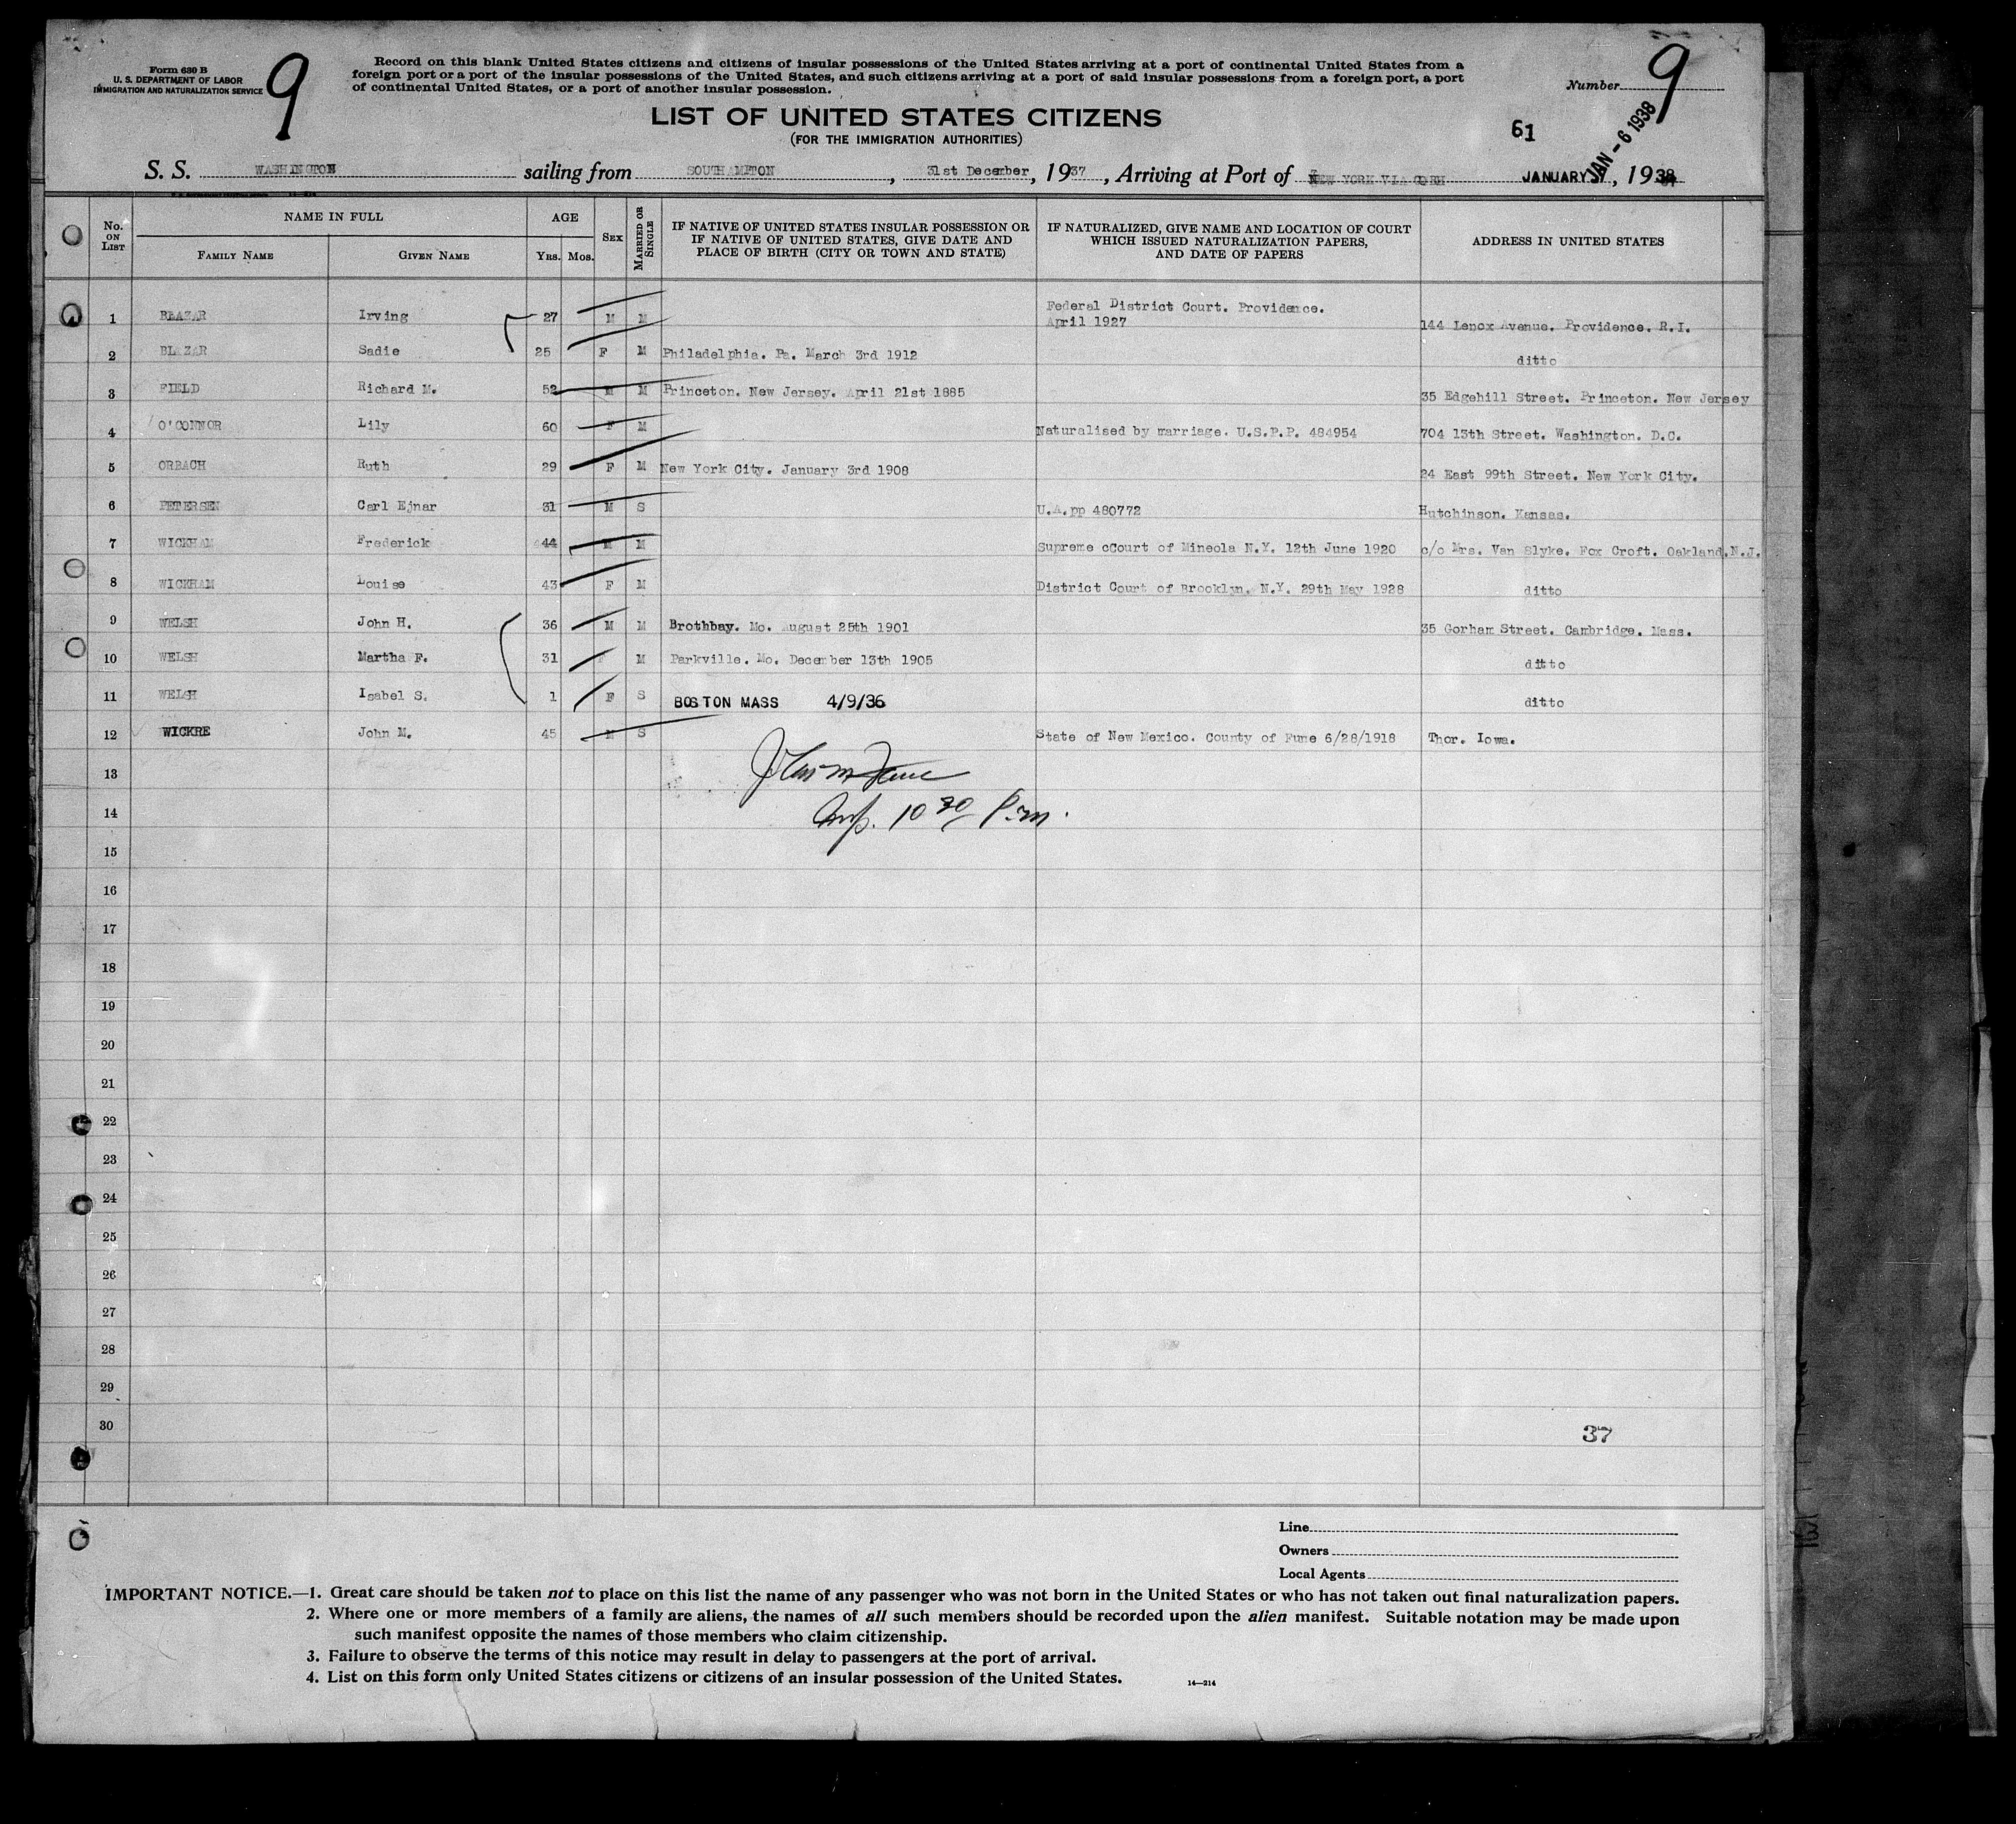 Form 630 B
U. S. DEPARTMENT OF LABOR
IMMIGRATION AND NATURALIZATION SERVICE
9
Record on this blank United States citizens and citizens of insular possessions of the United States arriving at a port of continental United States from a
foreign port or a port of the insular possessions of the United States, and such citizens arriving at a port of said insular possessions from a foreign port, a port
of continental United States, or a port of another insular possession.
Number 9
LIST OF UNITED STATES CITIZENS
(FOR THE IMMIGRATION AUTHORITIES)
61
JAN - 6 1938
S. S. WASHINGTON sailing from SOUTHAMPTON, 31st December, 1937, Arriving at Port of NEW YORK VIA COBH JANUARY, 1938
No. ON LIST
NAME IN FULL
FAMILY NAME
GIVEN NAME
AGE
YRS. MOS.
SEX
MARRIED OR SINGLE
IF NATIVE OF UNITED STATES INSULAR POSSESSION OR
IF NATIVE OF UNITED STATES, GIVE DATE AND
PLACE OF BIRTH (CITY OR TOWN AND STATE)
IF NATURALIZED, GIVE NAME AND LOCATION OF COURT
WHICH ISSUED NATURALIZATION PAPERS,
AND DATE OF PAPERS
ADDRESS IN UNITED STATES
1 BLAZAR Irving 27 M M Federal District Court. Providence.
April 1927 144 Lenox Avenue. Providence. R.I.
2 BLAZAR Sadie 25 F M Philadelphia. Pa. March 3rd 1912 ditto
3 FIELD Richard M. 52 M M Princeton. New Jersey. April 21st 1885 35 Edgehill Street. Princeton. New Jersey
4 O'CONNOR Lily 60 F M Naturalised by marriage. U.S.P.P. 484954 704 13th Street. Washington. D.C.
5 ORBACH Ruth 29 F M New York City. January 3rd 1908 24 East 99th Street. New York City.
6 PETERSEN Carl Ejnar 31 M S U.A.pp 480772 Hutchinson. Kansas.
7 WICKHAM Frederick 44 M M Supreme cCourt of Mineola N.Y. 12th June 1920 c/o Mrs. Van Slyke. Fox Croft. Oakland.N.J.
8 WICKHAM Louise 43 F M District Court of Brooklyn. N.Y. 29th May 1928 ditto
9 WELSH John H. 36 M M Brothbay. Mo. August 25th 1901 35 Gorham Street. Cambridge. Mass.
10 WELSH Martha F. 31 F M Parkville. Mo. December 13th 1905 ditto
11 WELSH Isabel S. 1 F S BOSTON MASS 4/9/36 ditto
12 WICKRE John M. 45 M S State of New Mexico. County of Fune 6/28/1918 Thor. Iowa.
13
14 Insp. 10 30 P.m.
15
16
17
18
19
20
21
22
23
24
25
26
27
28
29
30
37
Line
Owners
Local Agents
IMPORTANT NOTICE.—1. Great care should be taken not to place on this list the name of any passenger who was not born in the United States or who has not taken out final naturalization papers.
2. Where one or more members of a family are aliens, the names of all such members should be recorded upon the alien manifest. Suitable notation may be made upon
such manifest opposite the names of those members who claim citizenship.
3. Failure to observe the terms of this notice may result in delay to passengers at the port of arrival.
4. List on this form only United States citizens or citizens of an insular possession of the United States.
14—214